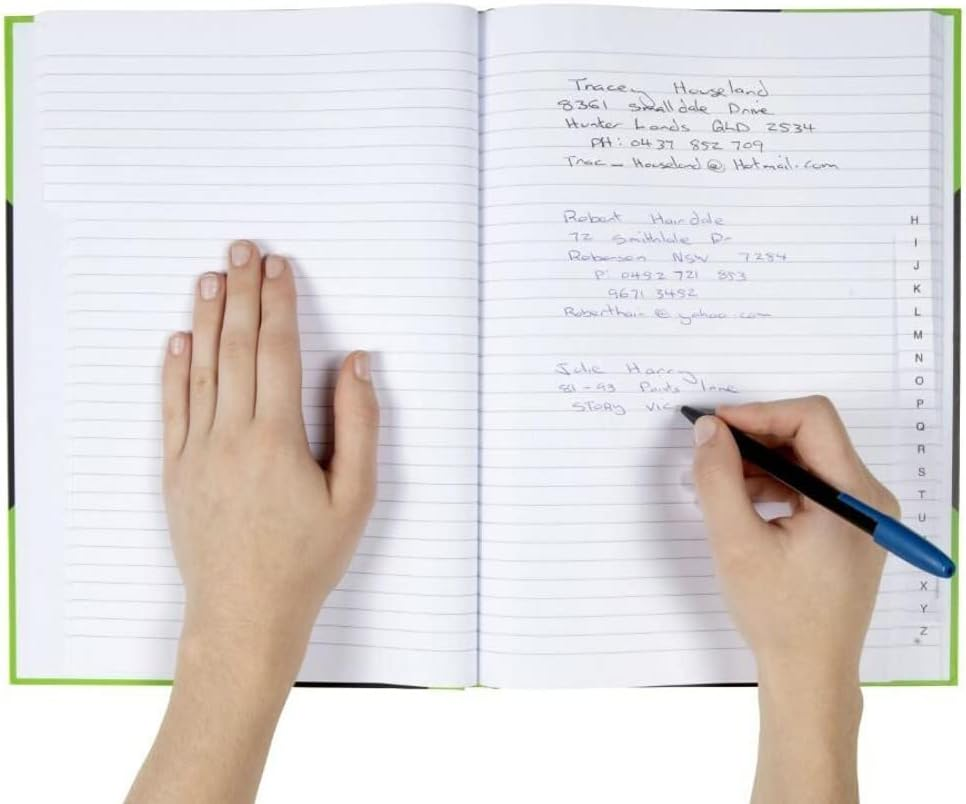 Tracey Houseland
8361 Smalldale Drive
Hunter Lands QLD 2534
PH: 0437 852 709
Trac_Houseland@Hotmail.com
Robert Hairdale
72 Smithdale Dr
Roberson NSW 7284
P: 0482 721 853
9671 3482
Roberthair@yahoo.com
Julie Harry
81-93 Points lane
STORY VIC
H
I
J
K
L
M
N
O
P
Q
R
S
T
U
X
Y
Z